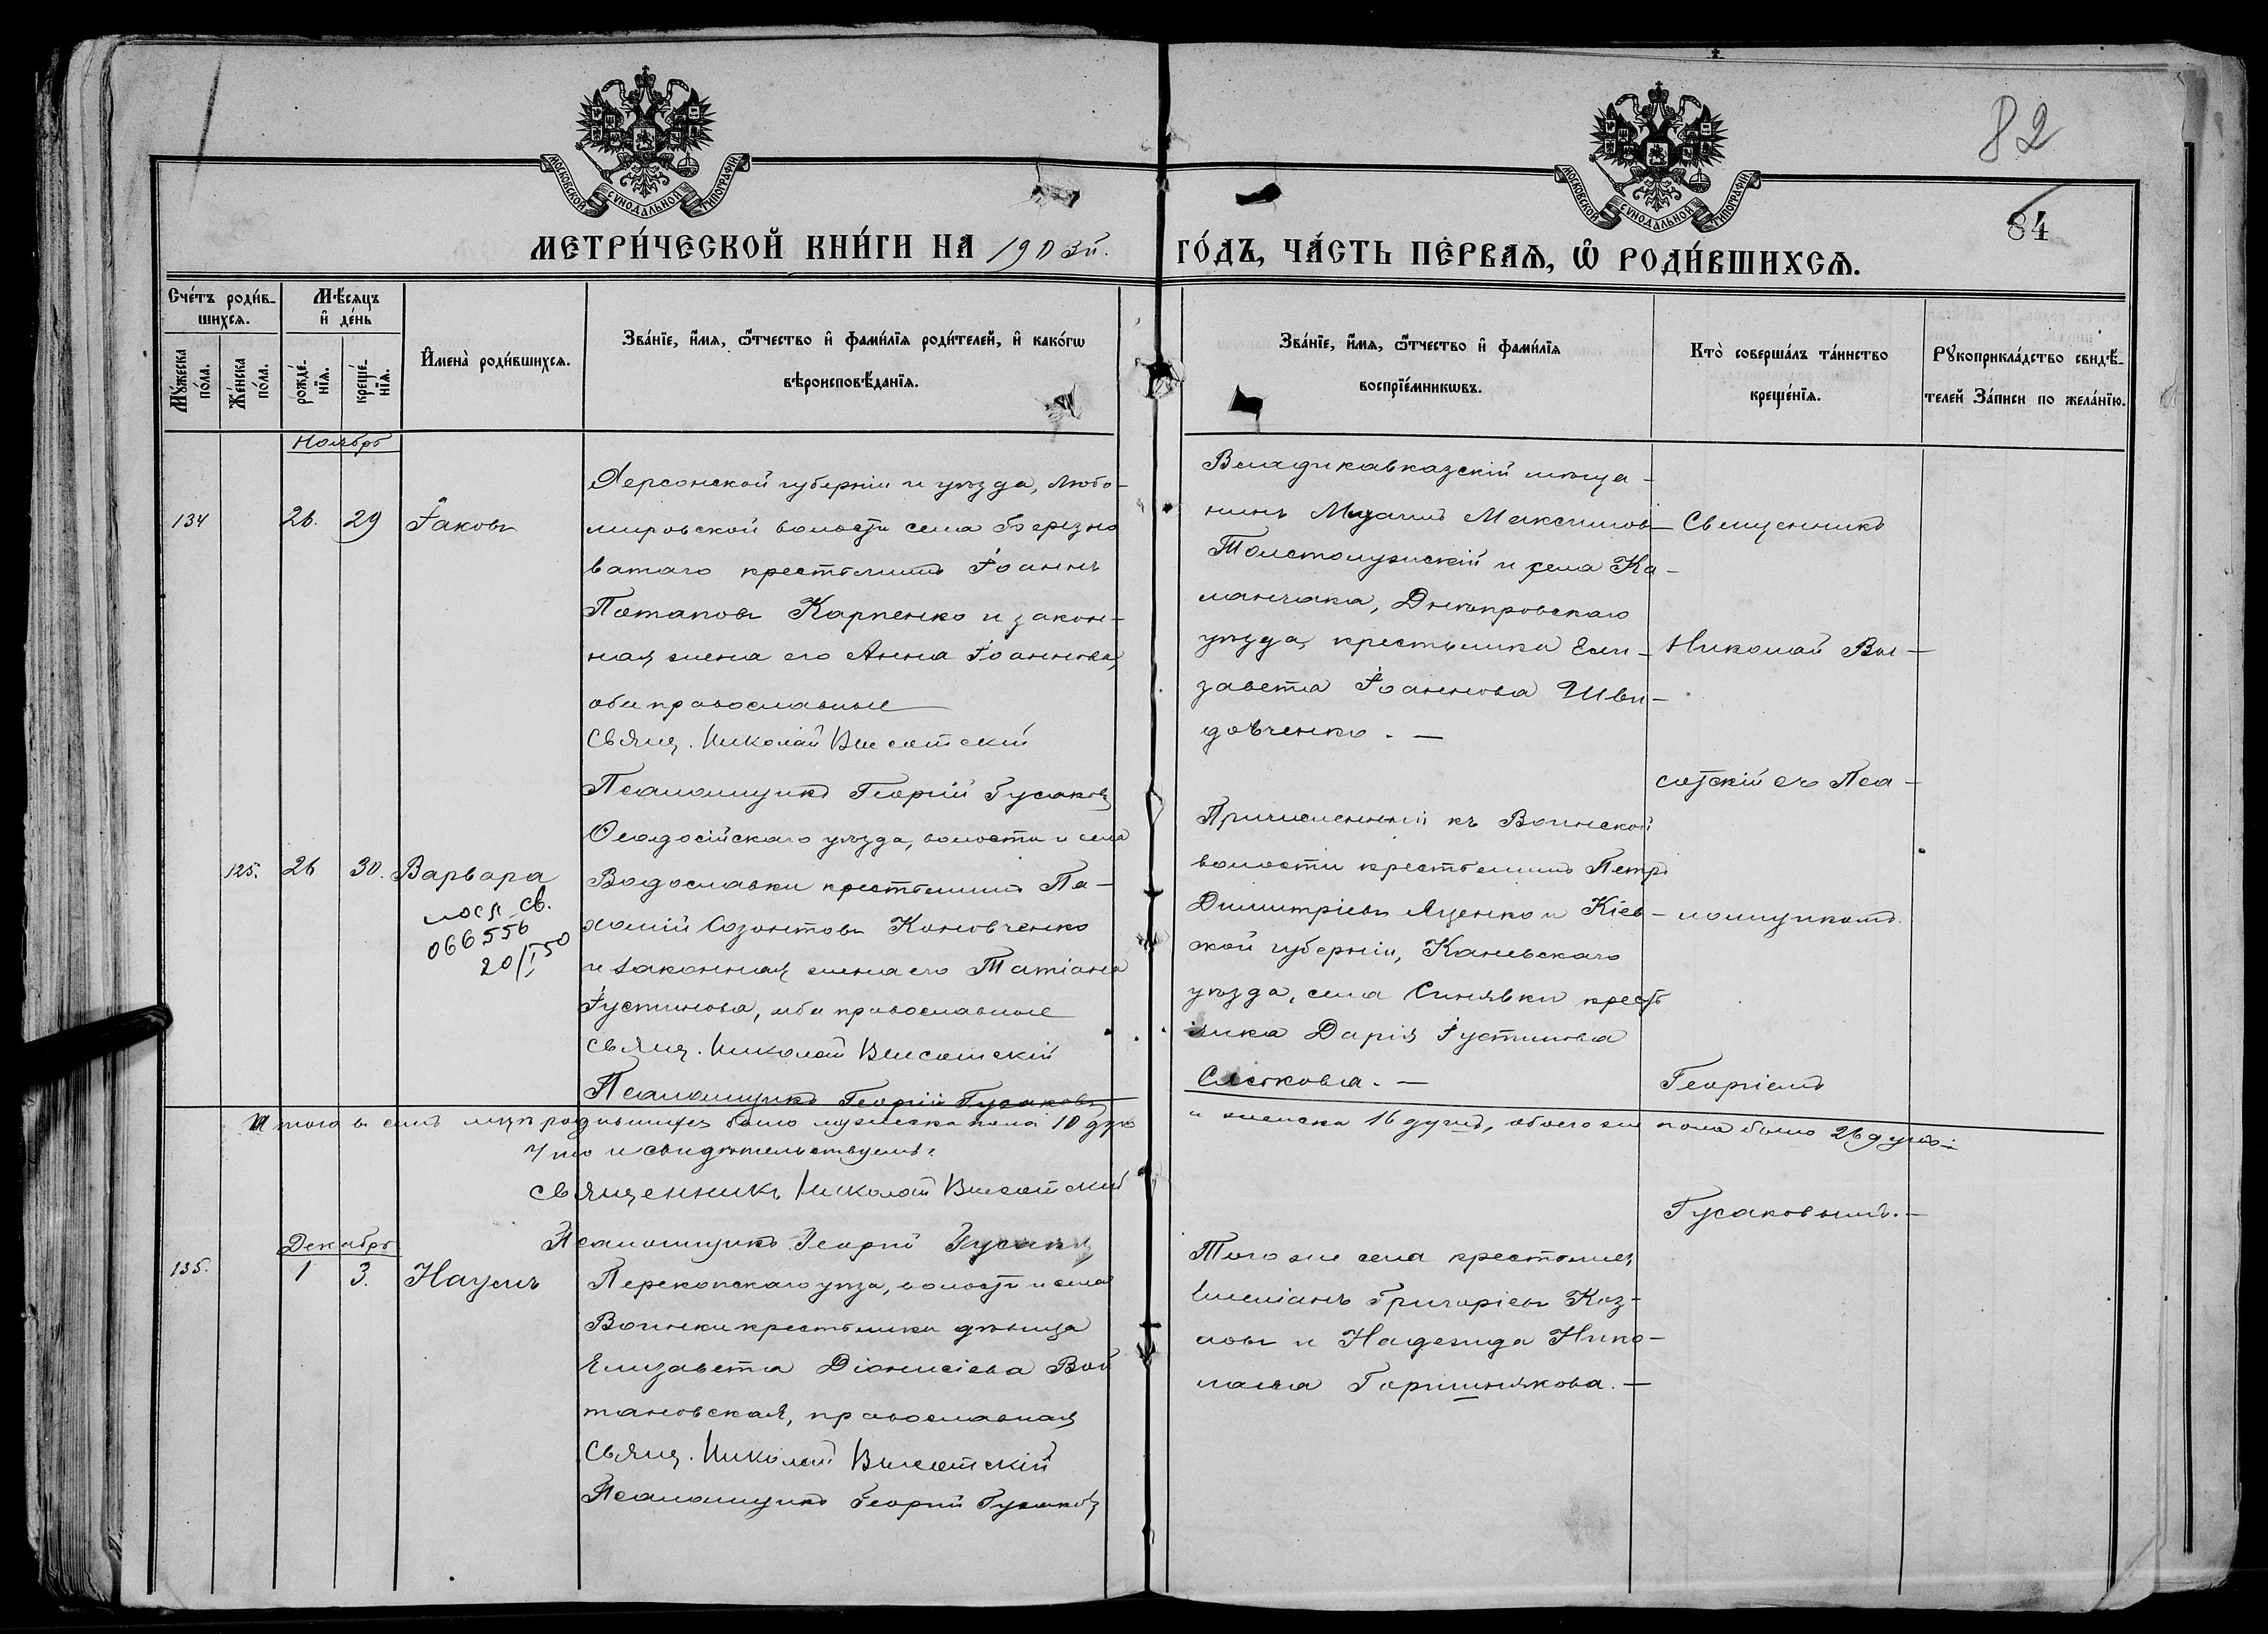 82
84
МОСКОВСКОЙ СѴНОДАЛЬНОЙ ТИПОГРАФІИ
МОСКОВСКОЙ СѴНОДАЛЬНОЙ ТИПОГРАФІИ
МЕТРИ́ЧЕСКОЙ КНИ́ГИ НА 1903й. ГО́ДЪ, ЧА́СТЬ ПЕ́РВАѦ, Ѽ РОДИ́ВШИХСѦ.
Сче́тъ роди́в-
шихсѧ.
Мѣ́сѧцъ
и҆ де́нь
Мꙋ́жеска
по́ла.
Же́нска
по́ла.
рожде́-
нїѧ.
креще́-
нїѧ.
И҆мена̀ роди́вшихсѧ.
Зва́нїе, и҆́мѧ, ѻ҆́тчество и҆ фами́лїѧ роди́телей, и҆ како́гѡ
вѣроисповѣ́данїѧ.
Зва́нїе, и҆́мѧ, ѻ҆́тчество и҆ фами́лїѧ
воспрїе́мникѡвъ.
Кто̀ соверша́лъ та́инство
креще́нїѧ.
Рꙋкоприкла́дство свидѣ́-
телей За́писи по жела́нїю.
Ноябрь
134 26. 29 Іаковъ
Херсонской губерніи и уѣзда, Любо-
мировской волости села Березно
ватаго крестьянинъ Іоаннъ
Потаповъ Карпенко и закон-
ная жена его Анна Іоаннова,
оба православные
Свящ. Николай Высотскій
Псаломщикъ Георгій Гусаковъ
Владикавказскій мѣща-
нинъ Максимов
Толстолужскій и села Ка-
ланчака, Днѣпровскаго
уѣзда, крестьянка Ели-
завета Іоаннова Шви-
довченко. —
Священникъ
Николай Вы-
сотскій съ Пса-
ломщикомъ
Георгіемъ
Гусаковымъ. —
125. 26 30. Варвара
посл. св.
066556
20/I 50
Ѳеодосійскаго уѣзда, волости и села
Богославки крестьянинъ Па-
хомій Созонтовъ Коновченко
и законная жена его Татіана
Іустинова, оба православные
Свящ. Николай Высотскій
Псаломщикъ Георгій Гусаковъ
Причисленный къ Воинской
волости крестьянинъ Петръ
Димитріевъ Яценко и Кіев-
ской губерніи, Каневскаго
уѣзда, села Синявки кресть
янка Дарія Іустинова
Итого въ семъ мѣс. родившихся было мужеска пола 10 душъ и женска 16 душъ, обоего же пола было 26 душъ.
Что и свидѣтельствуемъ:
Священникъ Николай Высотскій
Псаломщикъ Георгій Гусаковъ
Декабрь
135. 1 3. Наумъ
Перекопскаго уѣза, волости и села
Воинки крестьянки дѣвица
Елизавета Діонисіева Вой
тановская, православная
Свящ. Николай Высотскій
Псаломщикъ Георгій Гусаковъ
Того же села крестьяне,
Емеліанъ Григоріевъ Коз-
ловъ и Надежда Нико-
лаева Горшнякова. —